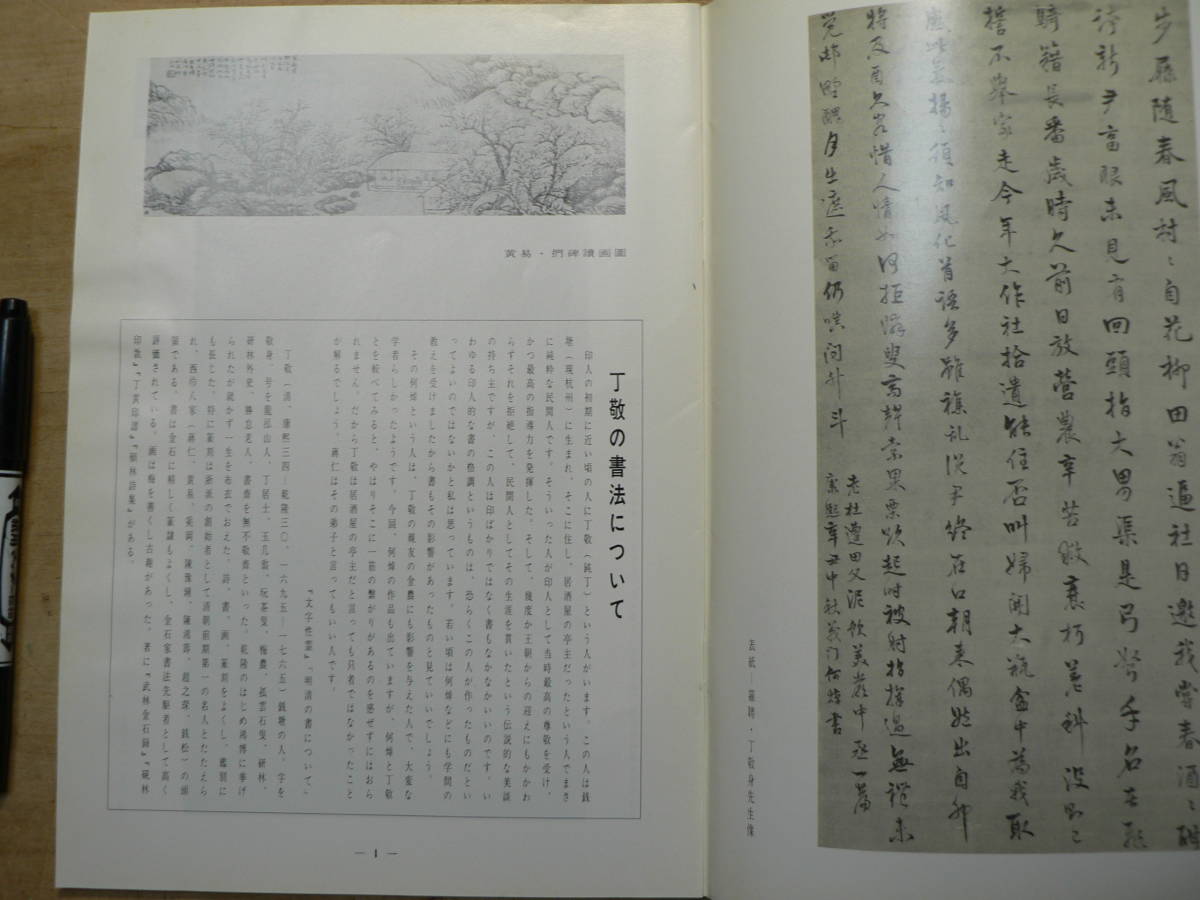 步屧随春風村〻自花柳田翁逼社日邀我嘗春酒〻酣
誇新尹畜眼未見有回頭指大男渠是弓弩手名在飛
騎籍長番歲時久前日放營農辛苦救衰朽差科死則已
誓不舉家走今年大作社拾遺能住否叫婦開大瓶盆中為我取
感此氣揚〻須知風化首語多雖雜乱説尹終在口朝来偶然出自卯
將及酉久客惜人情如何拒鄰叟高聲索果栗欲起時被肘指揮過無禮未
覚邨野醜月出遮我留仍嗔問升斗
老杜遭田父泥飲美嚴中丞一篇
康熙辛丑中秋義門何焯書
表紙—羅聘・丁敬身先生像
黄易・捫碑讀画圖
丁敬の書法について
印人の初期に近い頃の人に丁敬(純丁)という人がいます。この人は銭
塘(現杭州)に生まれ、そこに住し、居酒屋の亭主だったという人でまさ
に純粋な民間人です。そういった人が印人として当時最高の尊敬を受け、
かつ最高の指導力を発揮した。そして、幾度か王朝からの迎えにもかかわ
らずそれを拒絶して、民間人としてその生涯を貫いたという伝説的な美談
の持ち主ですが、この人は印ばかりではなく書もなかなかいいのです。い
わゆる印人的な書の格調というものは、恐らくこの人が作ったものだとい
ってよいのではないかと私は思っています。若い頃は何焯などにも学問の
教えを受けましたから書もその影響があったものと見ていいでしょう。
その何焯という人は、丁敬の親友の金農にも影響を与えた人で、大変な
学者らしかったようです。今回、何焯の作品も出ていますが、何焯と丁敬
とを較べてみると、やはりそこに一筋の繋がりがあるのを感ぜずにはおら
れません。だから丁敬は居酒屋の亭主だと言っても只者ではなかったこと
が解るでしょう。蒋仁はその弟子と言ってもいい人です。
『文字性霊』「明清の書について」
丁敬(清、康熙三四—乾隆三〇、一六九五—一七六五)銭塘の人、字を
敬身、号を龍泓山人、丁居士、玉几翁、玩茶叟、梅農、孤雲石叟、研林、
研林外史、勝怠老人、書斎を無不敬斎といった。乾隆のはじめ鴻博に挙げ
られたが就かず一生を布衣でおえた。詩、書、画、篆刻をよくし、鑑別に
も長じた。特に篆刻は浙派の創始者として清朝前期第一の名人とたたえら
れ、西泠八家(蒋仁、黄易、奚岡、陳豫鍾、陳鴻寿、趙之琛、銭松)の領
領である。書は金石に精しく篆隷もよくし、金石家書法先駆者として高く
評価されている。画は梅を善くし古趣があった。著に『武林金石録』『硯林
印款』『丁黄印譜』『硯林詩集』がある。
— 1 —